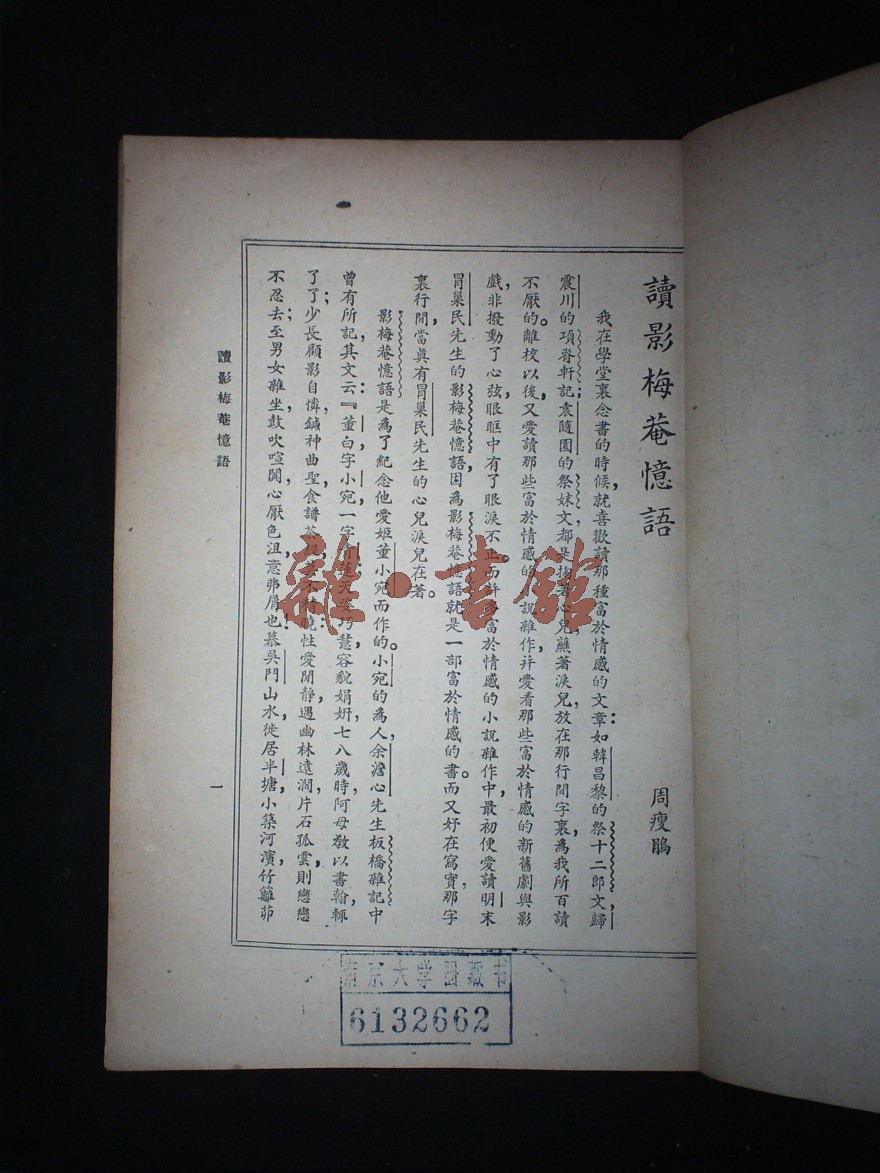 讀影梅菴憶語
周瘦鵑
我在學堂裏念書的時候,就喜歡讀那種富於情感的文章:如韓昌黎的祭十二郎文,歸
震川的項脊軒記;袁隨園的祭妹文,都是掬著心兒,蘸著淚兒,放在那行間字裏,為我所百讀
不厭的。離校以後,又愛讀那些富於情感的小說雜作,幷愛看那些富於情感的新舊劇與影
戲,非撥動了心弦,眼眶中有了眼淚不止。而許多富於情感的小說雜作中,最初便愛讀明末
冒巢民先生的影梅菴憶語,因為影梅菴憶語就是一部富於情感的書。而又好在寫實,那字
裏行間,當眞有冒巢民先生的心兒淚兒在著。
影梅菴憶語是為了紀念他愛姬董小宛而作的。小宛的為人,余澹心先生板橋雜記中
曾有所記,其文云:『董白,字小宛,一字青蓮,天姿巧慧,容貌娟姸,七八歲時,阿母敎以書翰,輒
了了;少長,顧影自憐,鍼神曲聖,食譜茶經,莫不精曉;性愛閒靜,遇幽林遠澗,片石孤雲,則戀戀
不忍去;至男女雜坐,鼓吹喧闐,心厭色沮,意弗屑也!慕吳門山水,徙居半塘,小築河濱,竹籬茆
讀影梅菴憶語
一
雜·書館
南京大学图藏书
6132662